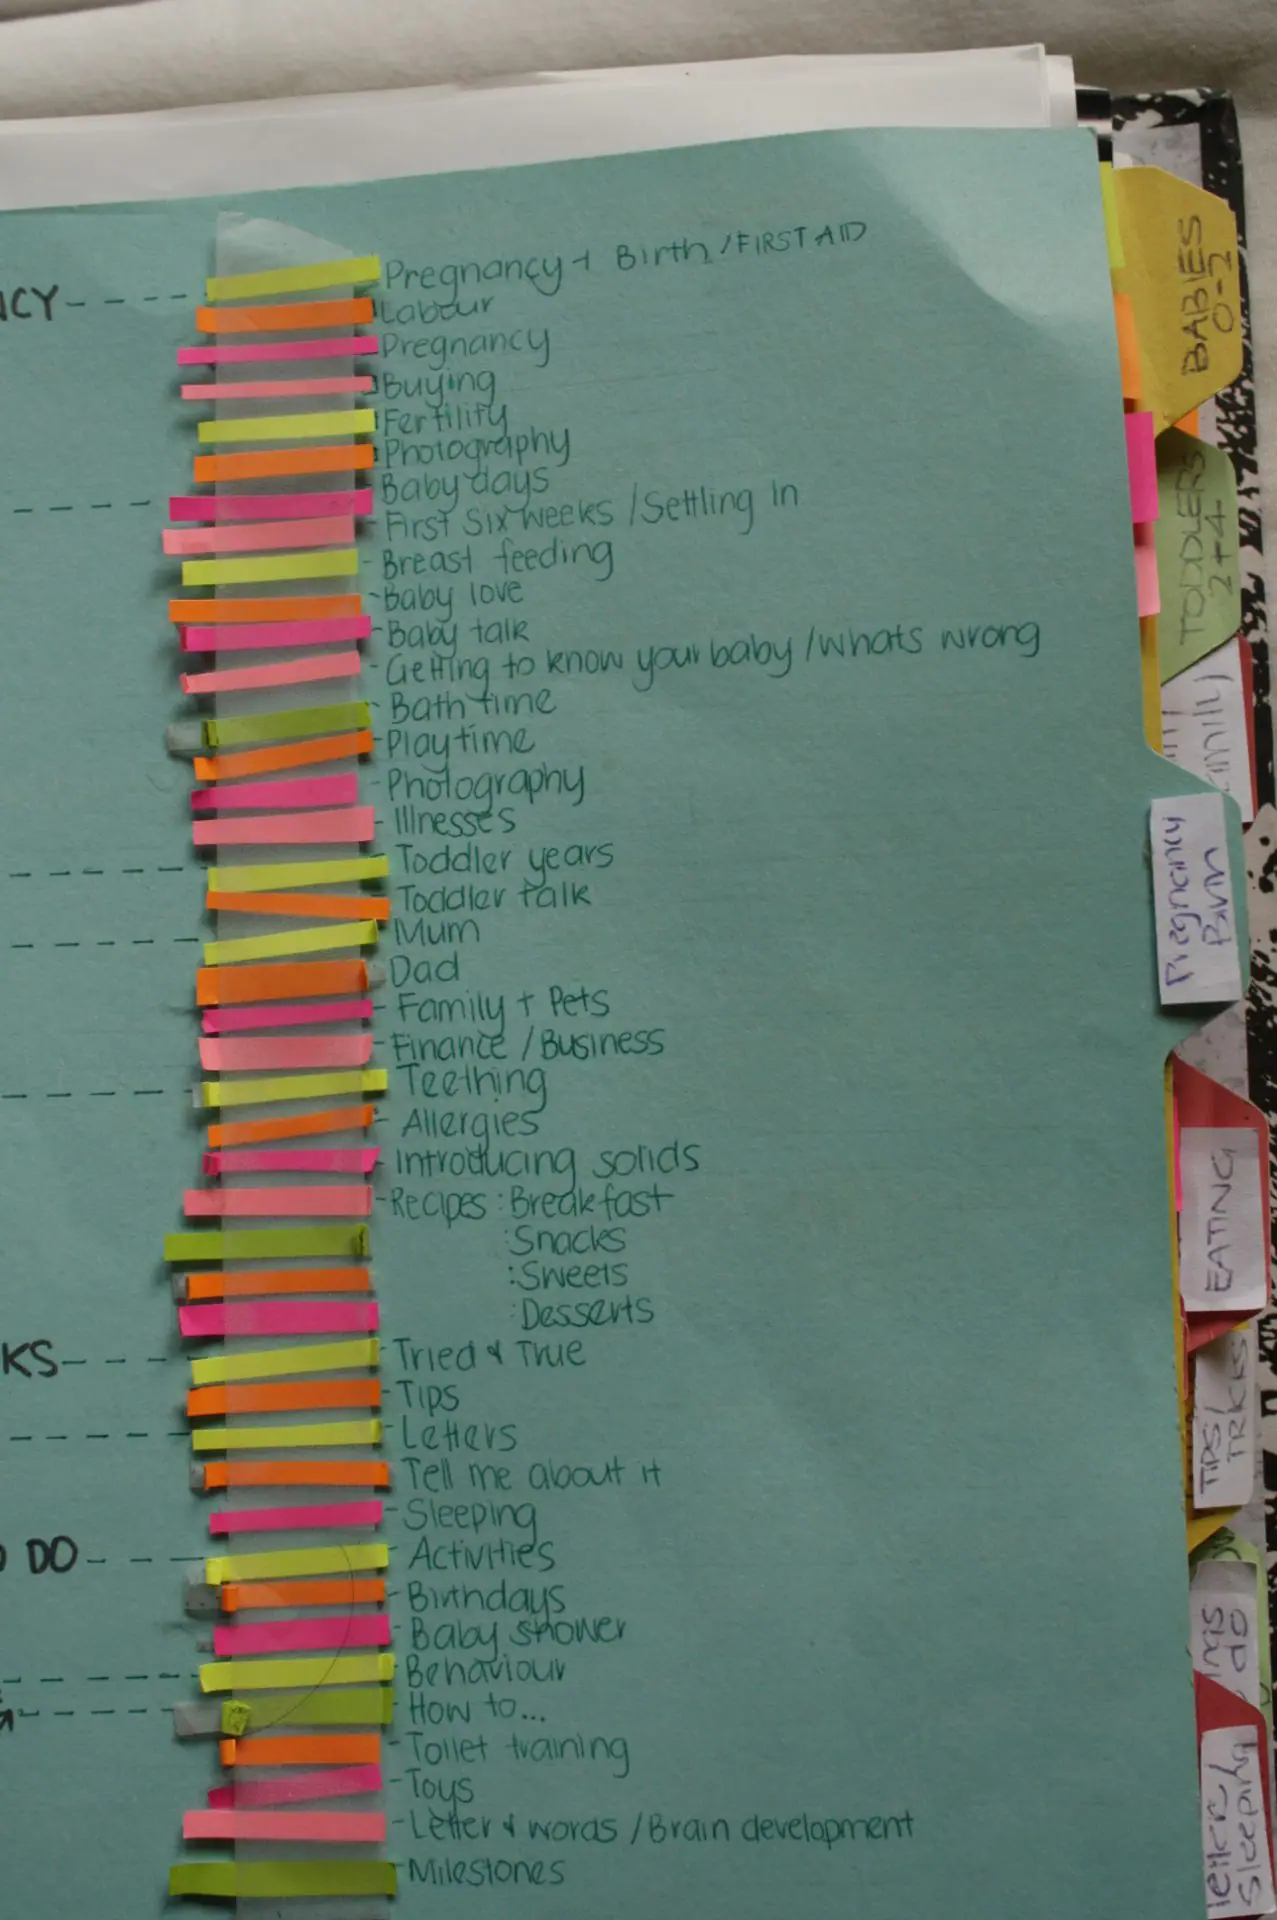 NCY
Pregnancy + Birth / FIRST AID
Labour
Pregnancy
Buying
Fertility
Photography
Baby days
First Six weeks / Settling In
Breast feeding
Baby love
Baby talk
Getting to know your baby / whats wrong
Bath time
Playtime
Photography
Illnesses
Toddler years
Toddler talk
Mum
Dad
Family + Pets
Finance / Business
Teething
Allergies
Introducing solids
Recipes : Breakfast
: Snacks
: Sweets
: Desserts
KS
Tried & True
Tips
Letters
Tell me about it
Sleeping
DO
Activities
Birthdays
Baby shower
Behaviour
How to...
Toilet training
Toys
Letter & words / Brain development
Milestones
BABIES
0-2
TODDLERS
2+4
Pregnancy
Birth
EATING
TIPS/
TRKS
do
sleeping